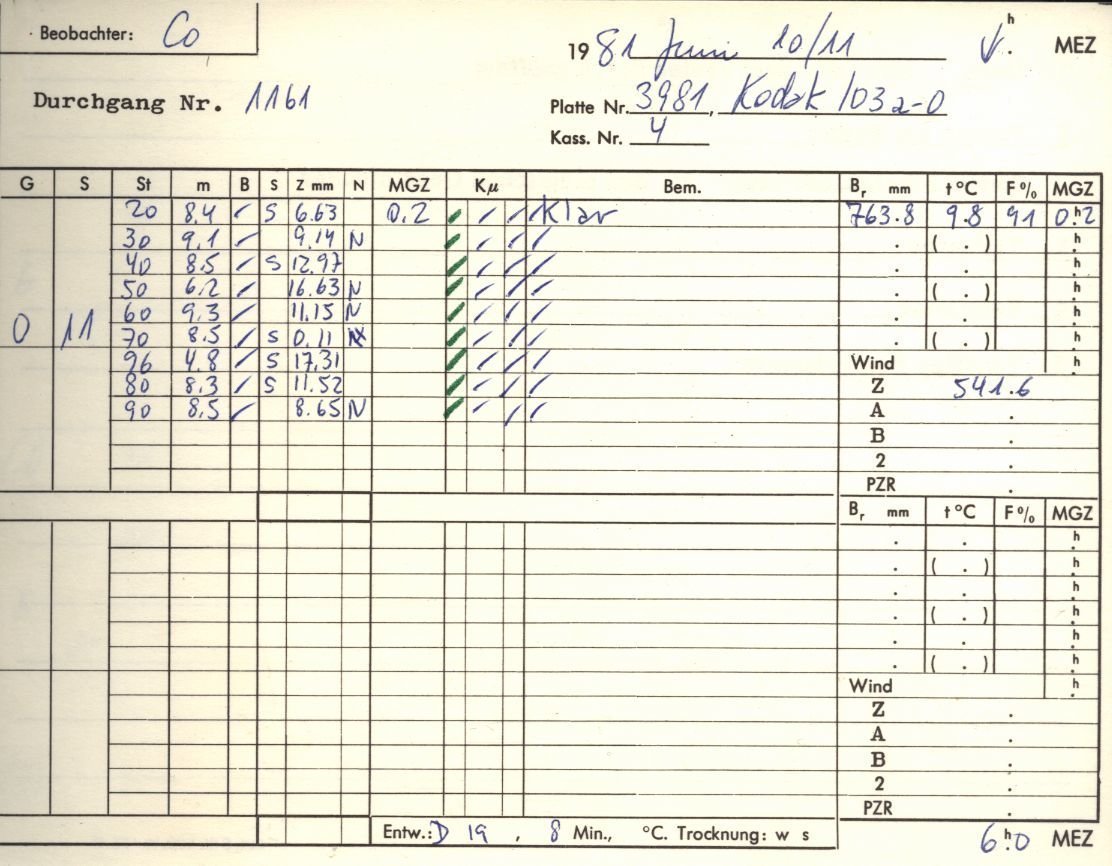 Beobachter: Co
19 81 Juni 10/11 h . MEZ
Durchgang Nr. 1161
Platte Nr. 3981, Kodak 103a-O
Kass. Nr. 4
G S St m B S Z mm N MGZ Kμ Bem. Br mm t °C F% MGZ
20 8.4 ✓ S 6.63 0.2 ✓ ✓ ✓ Klar 763.8 9.8 91 0h.2
30 9.1 ✓ 9.14 N ✓ ✓ ✓ ✓ . ( . ) h.
40 8.5 ✓ S 12.97 ✓ ✓ ✓ ✓ . . h.
50 6.2 ✓ 16.63 N ✓ ✓ ✓ ✓ . ( . ) h.
60 9.3 ✓ 11.15 N ✓ ✓ ✓ ✓ . . h.
0 11 70 8.5 ✓ S 0.11 ✓ ✓ ✓ ✓ . ( . ) h.
96 4.8 ✓ S 17.31 ✓ ✓ ✓ ✓ Wind h.
80 8.3 ✓ S 11.52 ✓ ✓ ✓ ✓ Z 541.6
90 8.5 ✓ 8.65 N ✓ ✓ ✓ ✓ A .
B .
2 .
PZR .
Br mm t °C F% MGZ
. . h.
. ( . ) h.
. . h.
. ( . ) h.
. . h.
. ( . ) h.
Wind h.
Z .
A .
B .
2 .
PZR
Entw.: D 19 , 8 Min., °C. Trocknung: w s
6h.0 MEZ